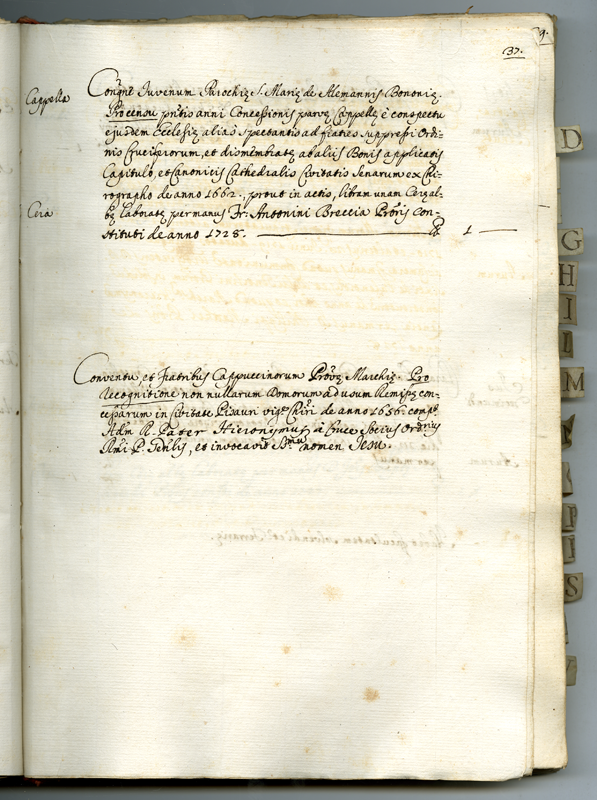 9.
37.
Cappella
Congne Iuvenum Parochię S. Marię de Alemannis Bononię.
Pro censu pntis anni Concessionis parvę Cappellę è conspectu
ejusdem Ecclesię alias spectantis ad fratres suppressi Ordi-
nis Cruciferorum, et dismembratę ab aliis Bonis applicatis
Capitulo, et Canonicis Cathedralis Civitatis Senarum ex Chi-
rographo de anno 1662., prout in actis, libram unam Cerę al-
Cera
bę laboratę per manus Fr: Antonini Breccia Proris con-
stituti de anno 1728. ℔ 1
Conventu, et Fratribus Cappuccinorum Provę Marchię. Pro
Recognitione non nullarum Domorum ad usum Remipę con-
cessarum in Civitate Pisauri vige Chiri de anno 1656. compt
Adm R. Pater Hieronymus à Cruce Socius Ordnis
Rmi P. Gnlis, et invocavit Smu nomen Jesu.
D
G
H
I
L
M
P
I
S
V